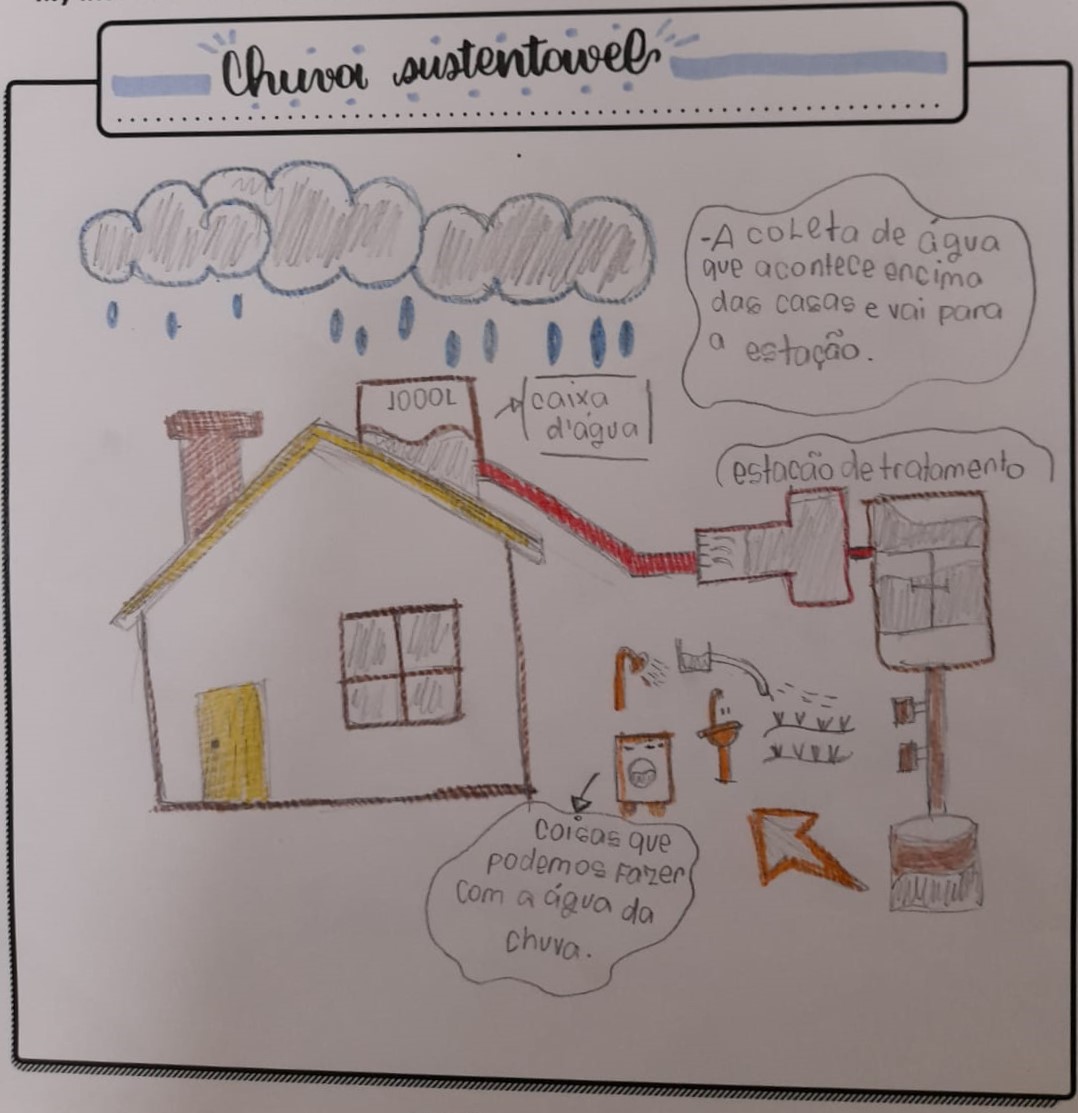 Chuva sustentavel
-A coleta de água
que acontece encima
das casas e vai para
a estação.
1000L
caixa
d'água
estacão de tratamento
coisas que
podemos fazer
com a água da
chuva.